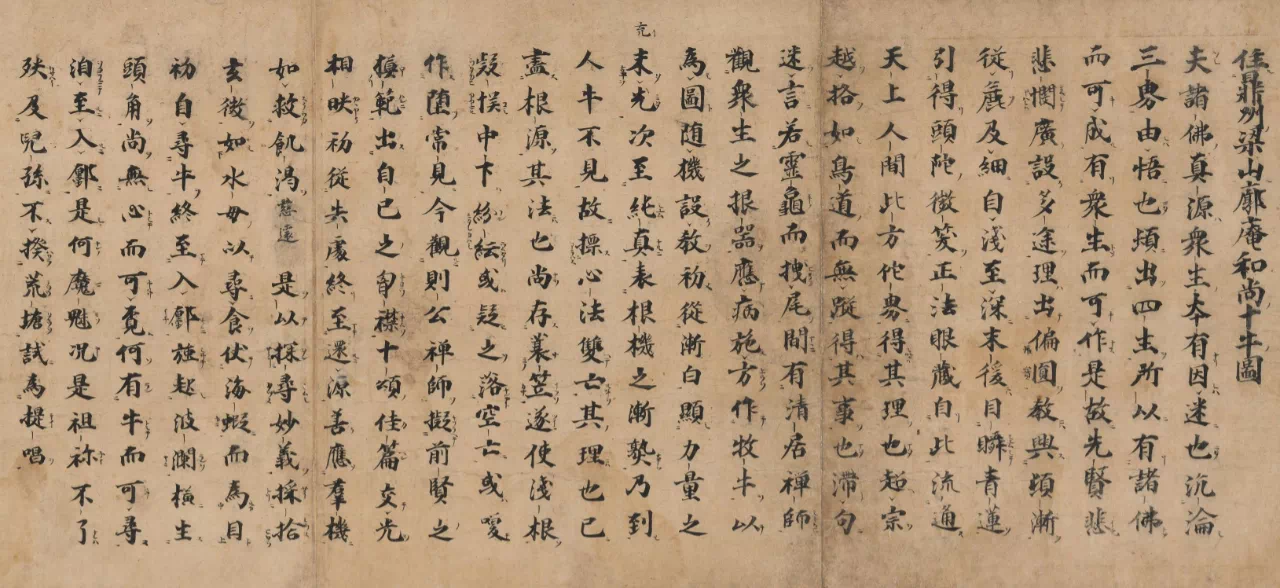 住鼎州梁山廓庵和尚十牛圖
夫諸佛真源衆生本有因迷也沉淪
三界由悟也頓出四生所以有諸佛
而可成有衆生而可作是故先賢悲
悲憫廣設多途理出偏圓教興頓漸
從麁及細自淺至深末後目瞬青蓮
引得頭陀微笑正法眼蔵自此流通
天上人間此方佗界得其理也超宗
越格如鳥道而無蹤得其事也滯句
迷言若靈龜而拽尾間有清居禅師
觀衆生之根器應病施方作牧牛以
為圖随機設教初從漸白顯力量之
充
未充次至純真表根機之漸熟乃到
人牛不見故操心法雙亡其理也已
盡根源其法也尚存蓑笠遂使淺根
疑悞中下紛紜或疑之落空亡或喚
作堕常見今觀則公禅師擬前賢之
模範出自己之胷襟十頌佳篇交光
相映初從失處終至還源善應羣機
如救飢渴慈遠是以探尋妙義採拾
玄微如水母以尋飡伏海蝦而為目
初自尋牛終至入鄽強起波瀾横生
頭角尚無心而可覔何有牛而可尋
洎至入鄽是何魔魅况是祖祢不了
殃及兒孫不揆荒搪試為提唱